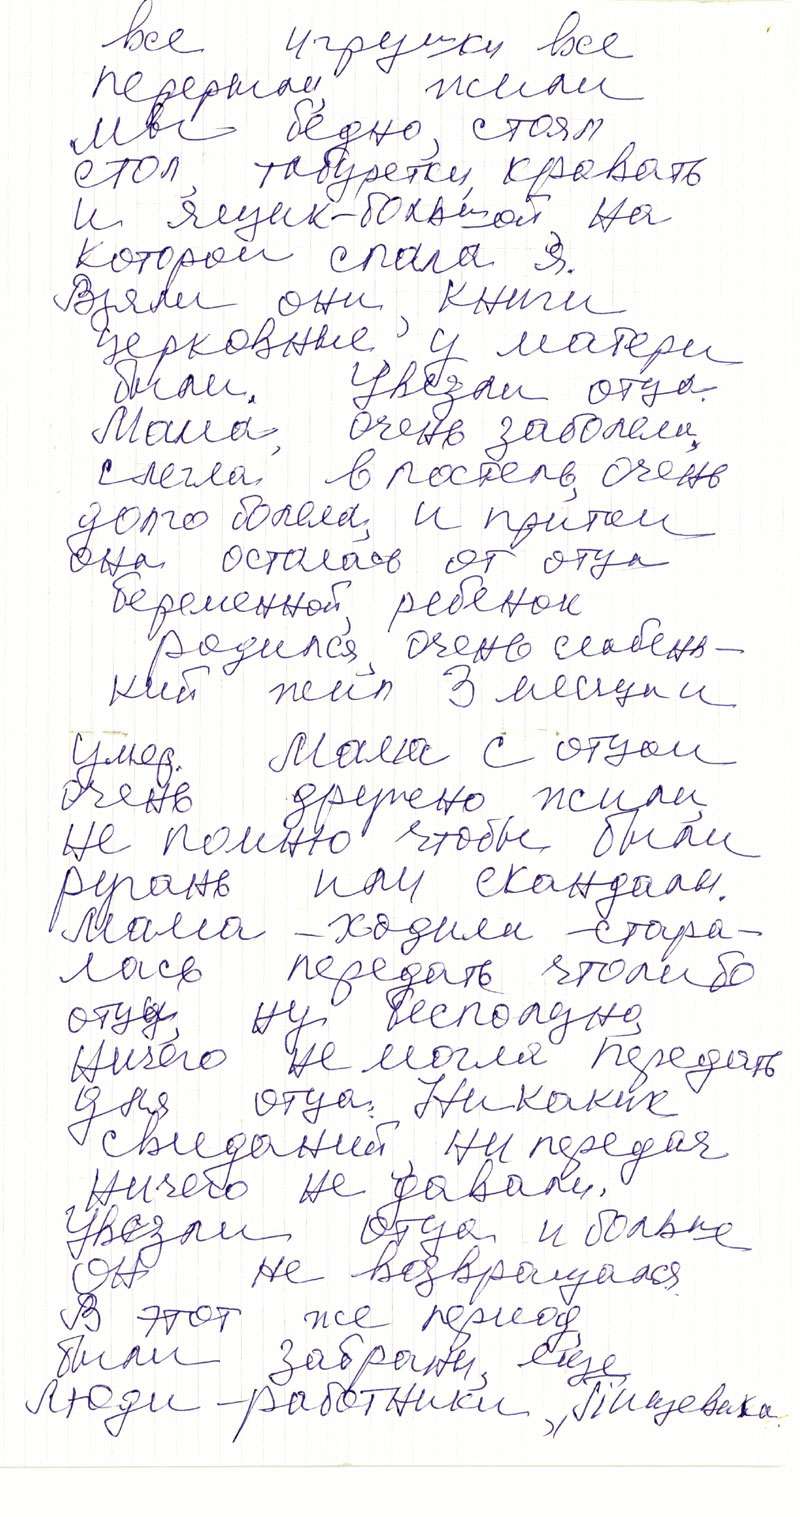 все игрушки все
перерыли, жили
мы бедно, стоял
стол, табуретки, кровать
и ящик-большой, на
котором спала я.
Взяли они, книги
церковные у матери
были. Увезли отца.
Мама, очень заболела,
слегла в постель, очень
долго болела, и притом
она осталась от отца
беременной, ребенок
родился, очень слабень-
кий жил 3 месяца и
умер. Мама с отцом
очень дружно жили,
не помню чтобы были
ругань или скандалы.
Мама - ходила - стара-
лась передать чтолибо
отцу, ну бесполезно,
ничего не могла передать
для отца. Никаких
свиданий, ни передач
ничего не давали.
Увезли отца и больше
он не возвращался
В этот же период,
были забраны, еще,
люди - работники, "Пищевика